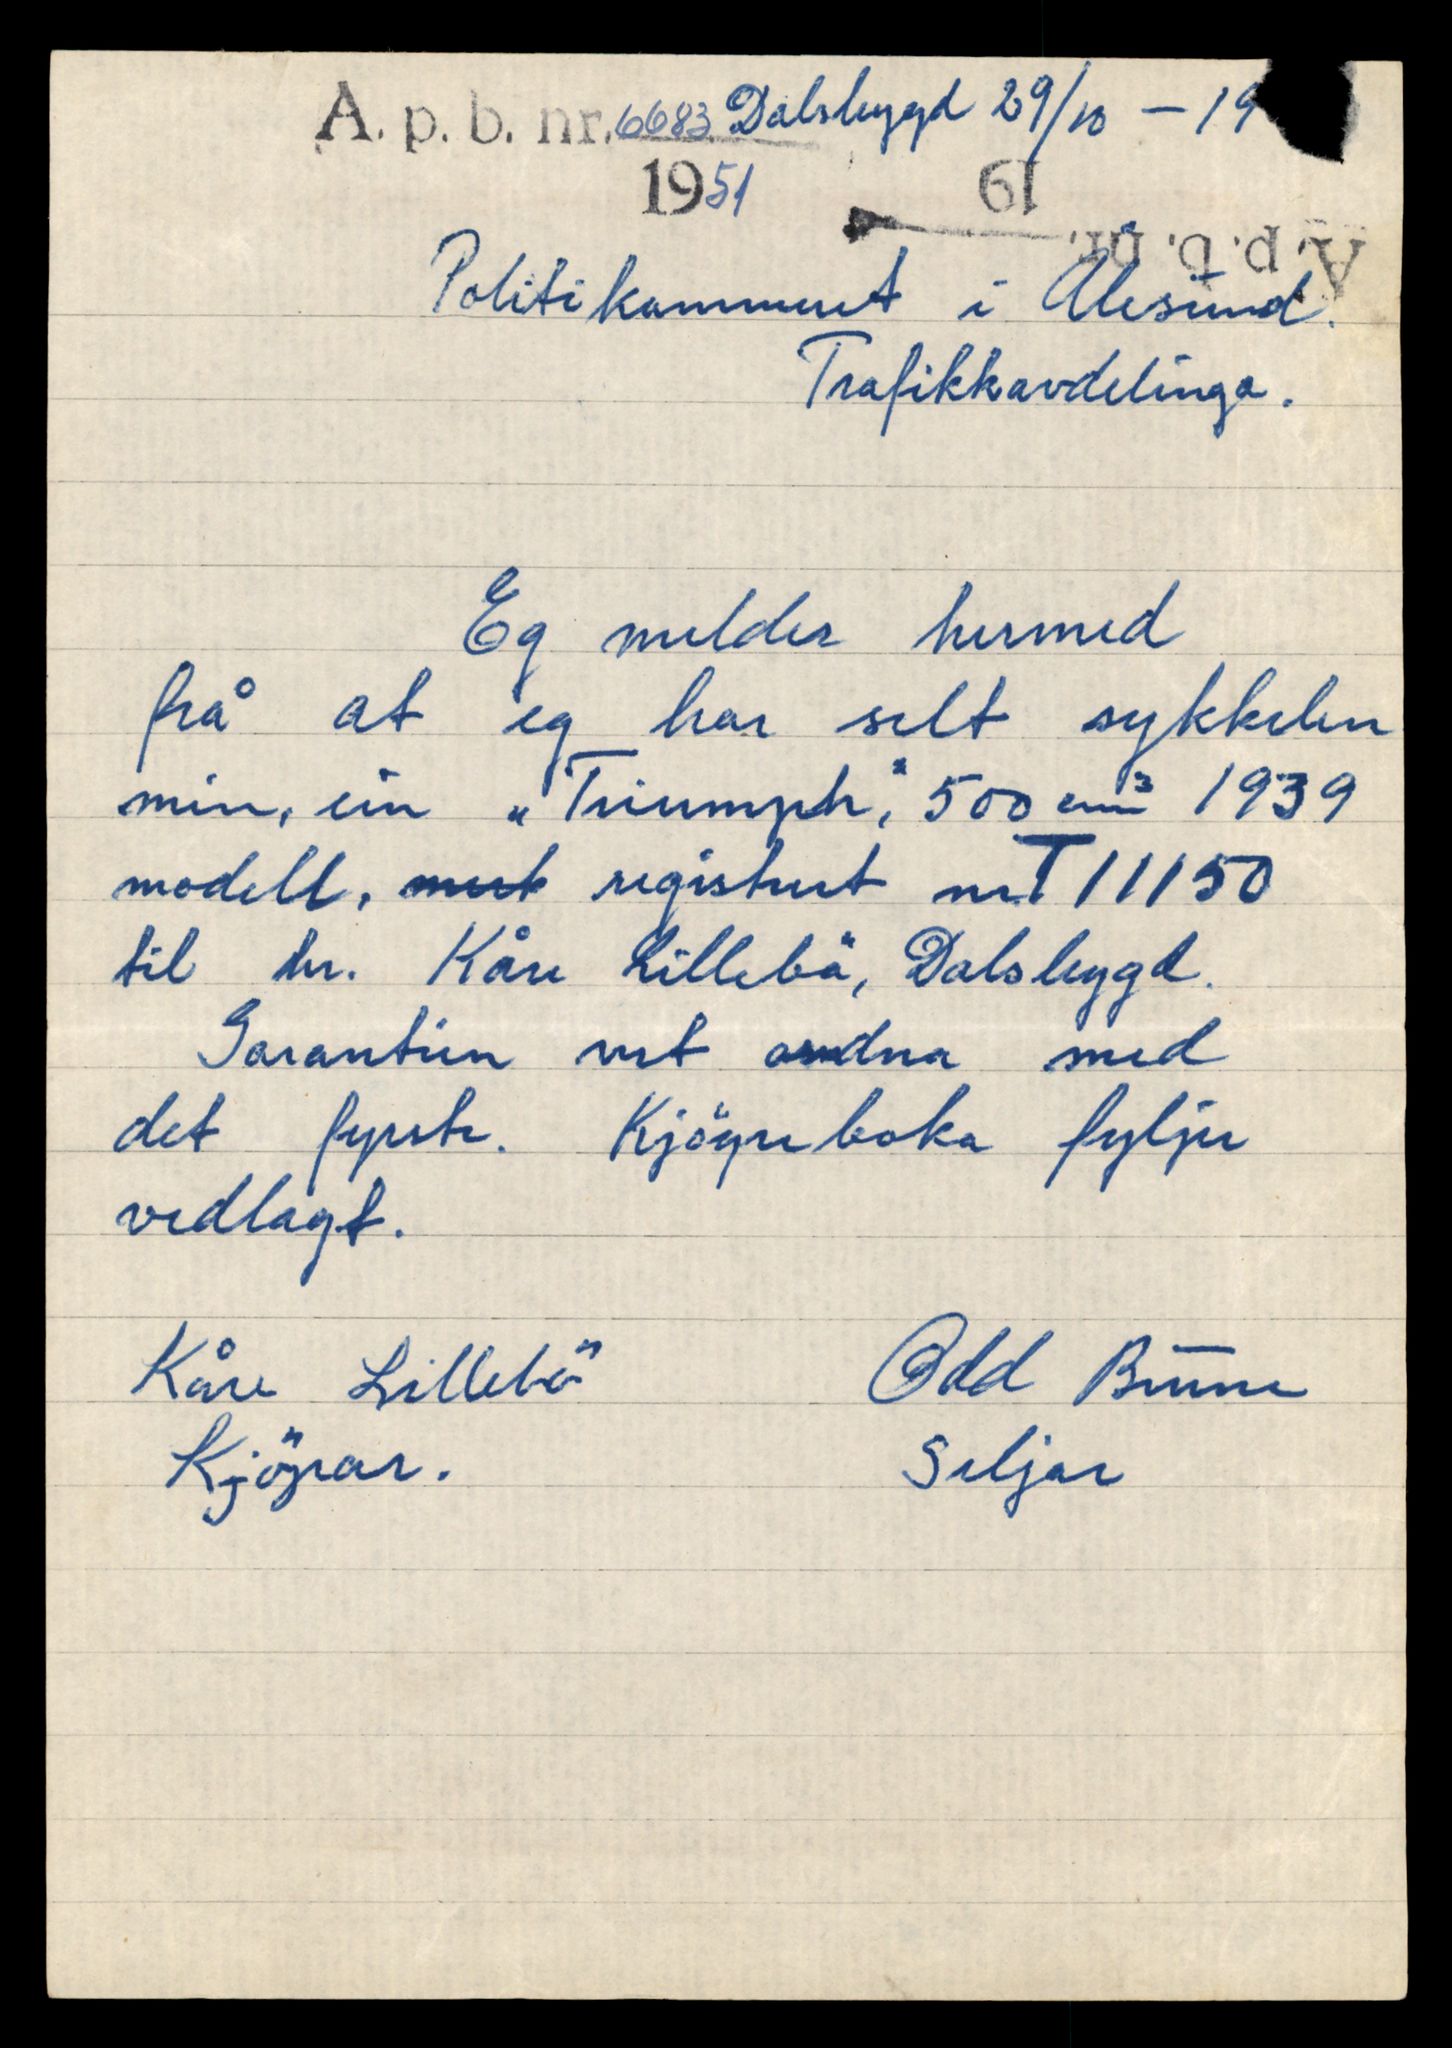 A. p. b. nr. 6683 Dalsbygd 29/10 - 19
1951
19
A. p. b. nr.
Politikammeret i Ålesund.
Trafikkavdelinga.
Eg melder hermed
frå at eg har selt sykkelen
min, ein „Triumph", 500 cm³ 1939
modell, registrert nr. T 11150
til hr. Kåre Lillebö, Dalsbygd.
Garantien vert ordna med
det fyrste. Kjöpeboka fylgjer
vedlagt.
Kåre Lillebö Odd
Kjöpar. Seljar